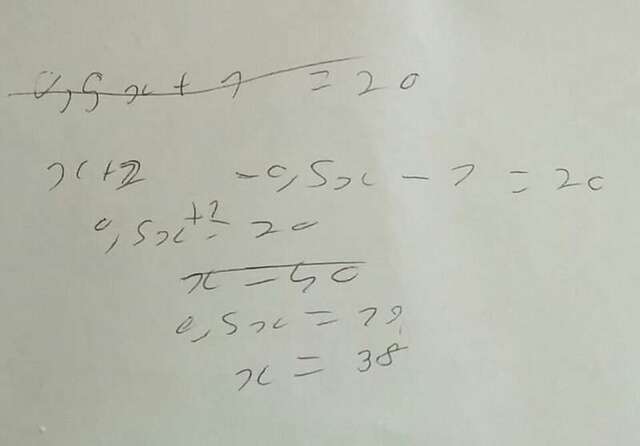 0,5x + 1 = 20
x+2 -0,5x - 1 = 20
0,5x+1 = 20
x = 40
0,5x = 19
x = 38